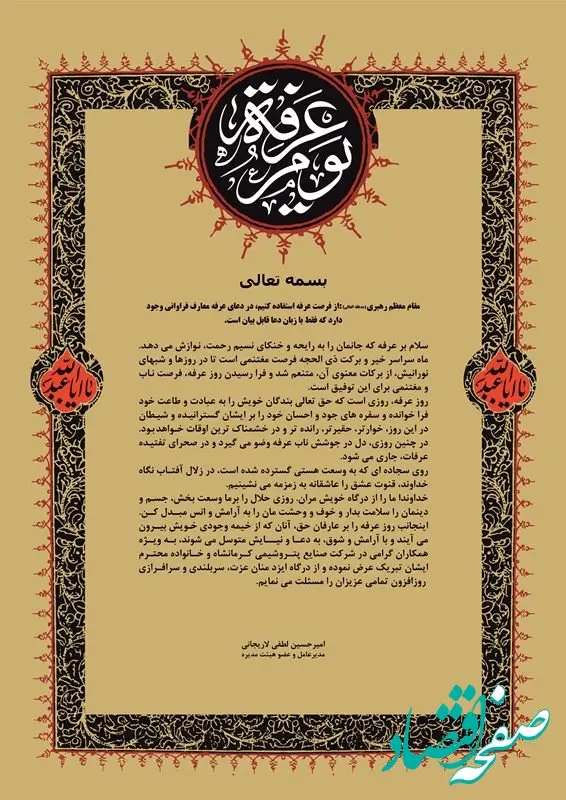 يوم عرفة
بسمه تعالی
مقام معظم رهبری(مدظله العالی):از فرصت عرفه استفاده کنیم، در دعای عرفه معارف فراوانی وجود
دارد که فقط با زبان دعا قابل بیان است.
سلام بر عرفه که جانمان را به رایحه و خنکای نسیم رحمت، نوازش می دهد.
ماه سراسر خیر و برکت ذی الحجه فرصت مغتنمی است تا در روزها و شبهای
نورانیش، از برکات معنوی آن، متنعم شد و فرا رسیدن روز عرفه، فرصت ناب
و مغتنمی برای این توفیق است.
روز عرفه، روزی است که حق تعالی بندگان خویش را به عبادت و طاعت خود
فرا خوانده و سفره های جود و احسان خود را بر ایشان گسترانیده و شیطان
در این روز، خوارتر، حقیرتر، رانده تر و در خشمناک ترین اوقات خواهدبود.
در چنین روزی، دل در جوشش ناب عرفه وضو می گیرد و در صحرای تفتیده
عرفات، جاری می شود.
روی سجاده ای که به وسعت هستی گسترده شده است، در زلال آفتاب نگاه
خداوند، قنوت عشق را عاشقانه به زمزمه می نشینیم.
خداوندا ما را از درگاه خویش مران. روزی حلال را برما وسعت بخش، جسم و
دینمان را سلامت بدار و خوف و وحشت مان را به آرامش و انس مبدل کن.
اینجانب روز عرفه را بر عارفان حق، آنان که از خیمه وجودی خویش بیرون
می آیند و با آرامش و شوق، به دعا و نیایش متوسل می شوند، به ویژه
همکاران گرامی در شرکت صنایع پتروشیمی کرمانشاه و خانواده محترم
ایشان تبریک عرض نموده و از درگاه ایزد منان عزت، سربلندی و سرافرازی
روزافزون تمامی عزیزان را مسئلت می نمایم.
امیرحسین لطفی لاریجانی
مدیرعامل و عضو هیئت مدیره
صفحه اقتصاد